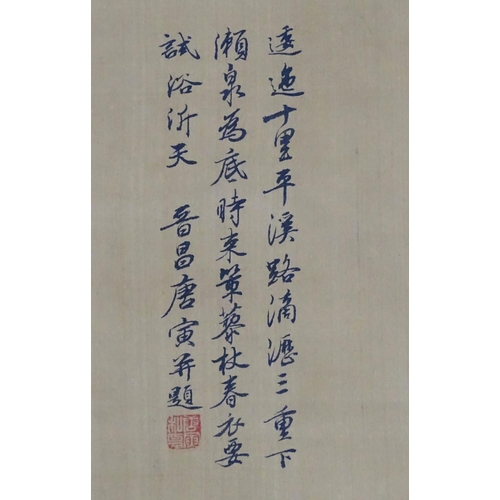 逶迤十里平溪路滴瀝三重下
瀨泉為底時來策藜杖春衣要
試浴沂天 晉昌唐寅并題